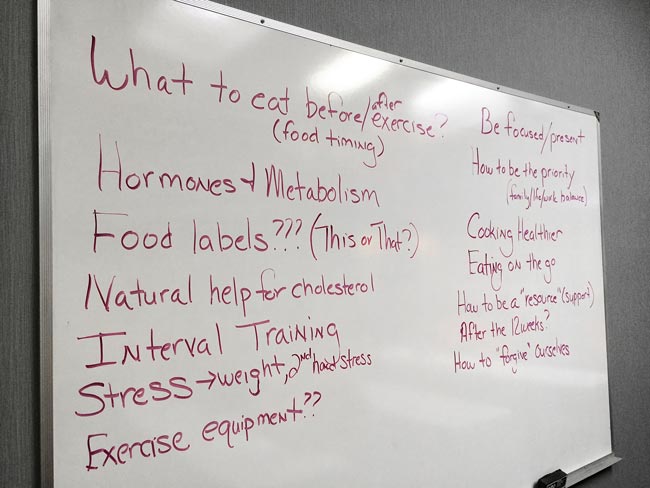 What to eat before/after exercise?
(food timing)
Hormones & Metabolism
Food labels??? (This or That?)
Natural help for cholesterol
Interval Training
Stress → weight, 2nd hand stress
Exercise equipment??
Be focused/present
How to be the priority
(family/life/work balance)
Cooking Healthier
Eating on the go
How to be a "resource" (support)
After the 12 weeks?
How to "forgive" ourselves